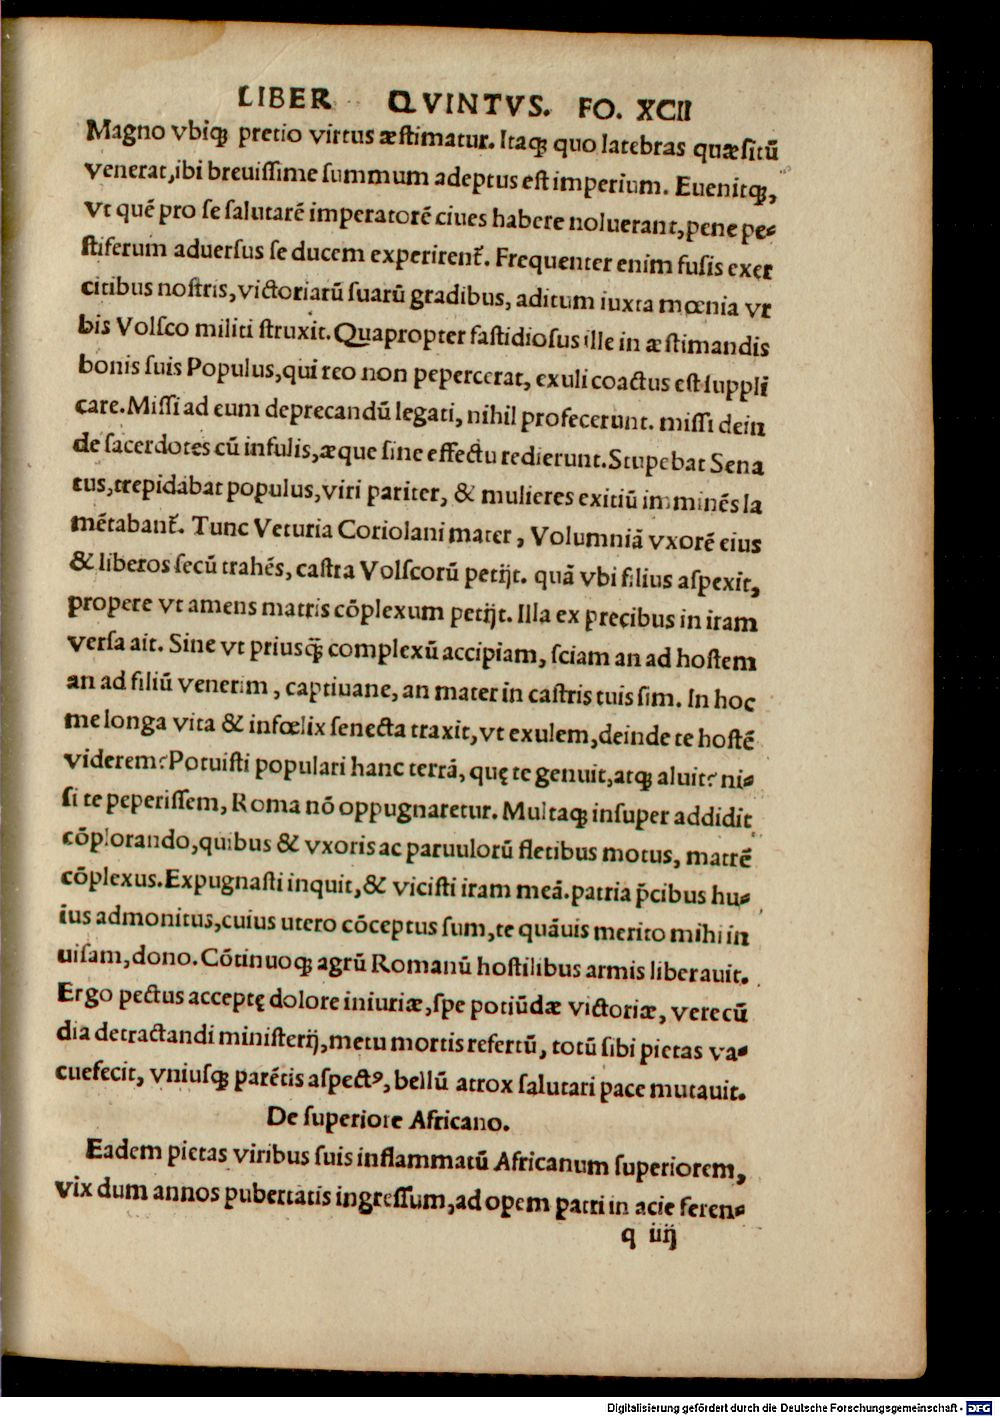 LIBER QVINTVS. FO. XCII
Magno vbiqꝫ pretio virtus æstimatur. Itaqꝫ quo latebras quæsitũ
venerat, ibi breuissime summum adeptus est imperium. Euenitqꝫ,
vt quẽ pro se salutarẽ imperatorẽ ciues habere noluerant, pene pe-
stiferum aduersus se ducem experirent᷑. Frequenter enim fusis exer
citibus nostris, victoriarũ suarũ gradibus, aditum iuxta mœnia vr
bis Volsco militi struxit. Quapropter fastidiosus ille in æstimandis
bonis suis Populus, qui reo non pepercerat, exuli coactus est suppli
care. Missi ad eum deprecandũ legati, nihil profecerunt. missi dein
de sacerdotes cũ infulis, æque sine effectu redierunt. Stupebat Sena
tus, trepidabat populus, viri pariter, & mulieres exitiũ imminẽs la
mẽtabant᷑. Tunc Veturia Coriolani mater, Volumniã vxorẽ eius
& liberos secũ trahẽs, castra Volscorũ petijt. quã vbi filius aspexit,
propere vt amens matris cõplexum petijt. Illa ex precibus in iram
versa ait. Sine vt priusq̃ complexũ accipiam, sciam an ad hostem
an ad filiũ venerim, captiuane, an mater in castris tuis sim. In hoc
me longa vita & infœlix senecta traxit, vt exulem, deinde te hostẽ
viderem? Potuisti populari hanc terrã, quę te genuit, atqꝫ aluit? ni-
si te peperissem, Roma nõ oppugnaretur. Multaqꝫ insuper addidit
cõplorando, quibus & vxoris ac paruulorũ fletibus motus, matrẽ
cõplexus. Expugnasti inquit, & vicisti iram meã. patria p̃cibus hu-
ius admonitus, cuius utero cõceptus sum, te quãuis merito mihi in
uisam, dono. Cõtinuoqꝫ agrũ Romanũ hostilibus armis liberauit.
Ergo pectus acceptę dolore iniuriæ, spe potiũdæ victoriæ, verecũ
dia detractandi ministerij, metu mortis refertũ, totũ sibi pietas va-
cuefecit, vniusqꝫ parẽtis aspectꝰ, bellũ atrox salutari pace mutauit.
De superiore Africano.
Eadem pietas viribus suis inflammatũ Africanum superiorem,
vix dum annos pubertatis ingressum, ad opem patri in acie feren-
q iiij
Digitalisierung gefördert durch die Deutsche Forschungsgemeinschaft - DFG